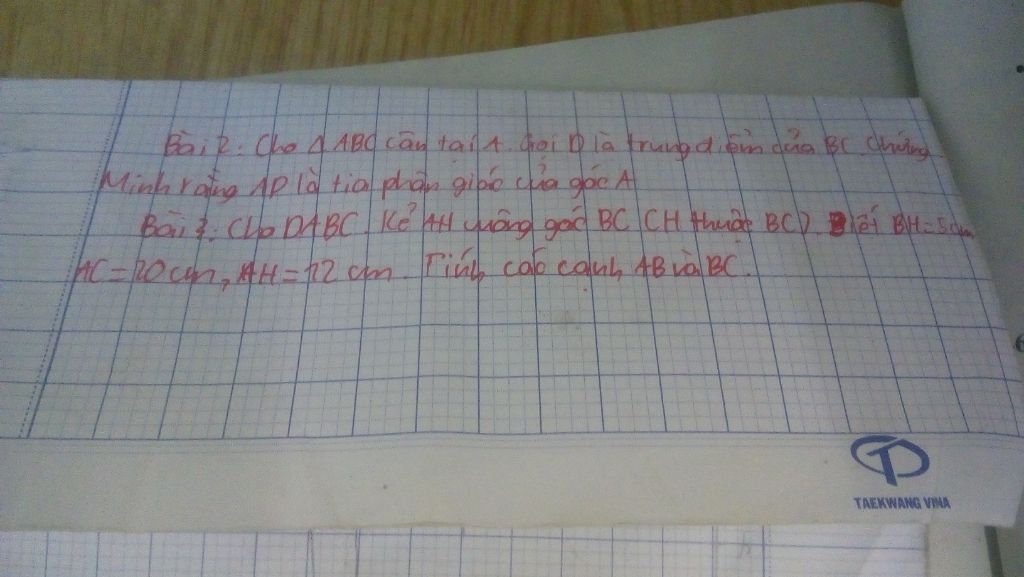 Bài 2: Cho Δ ABC cân tại A. Gọi D là trung điểm của BC. Chứng
Minh rằng AD là tia phân giác của góc A
Bài 3: Cho DABC. Kẻ AH vuông góc BC CH thuộc BC). Biết BH=5cm,
AC=20cm, AH=12cm. Tính các cạnh AB và BC.
TAEKWANG VINA